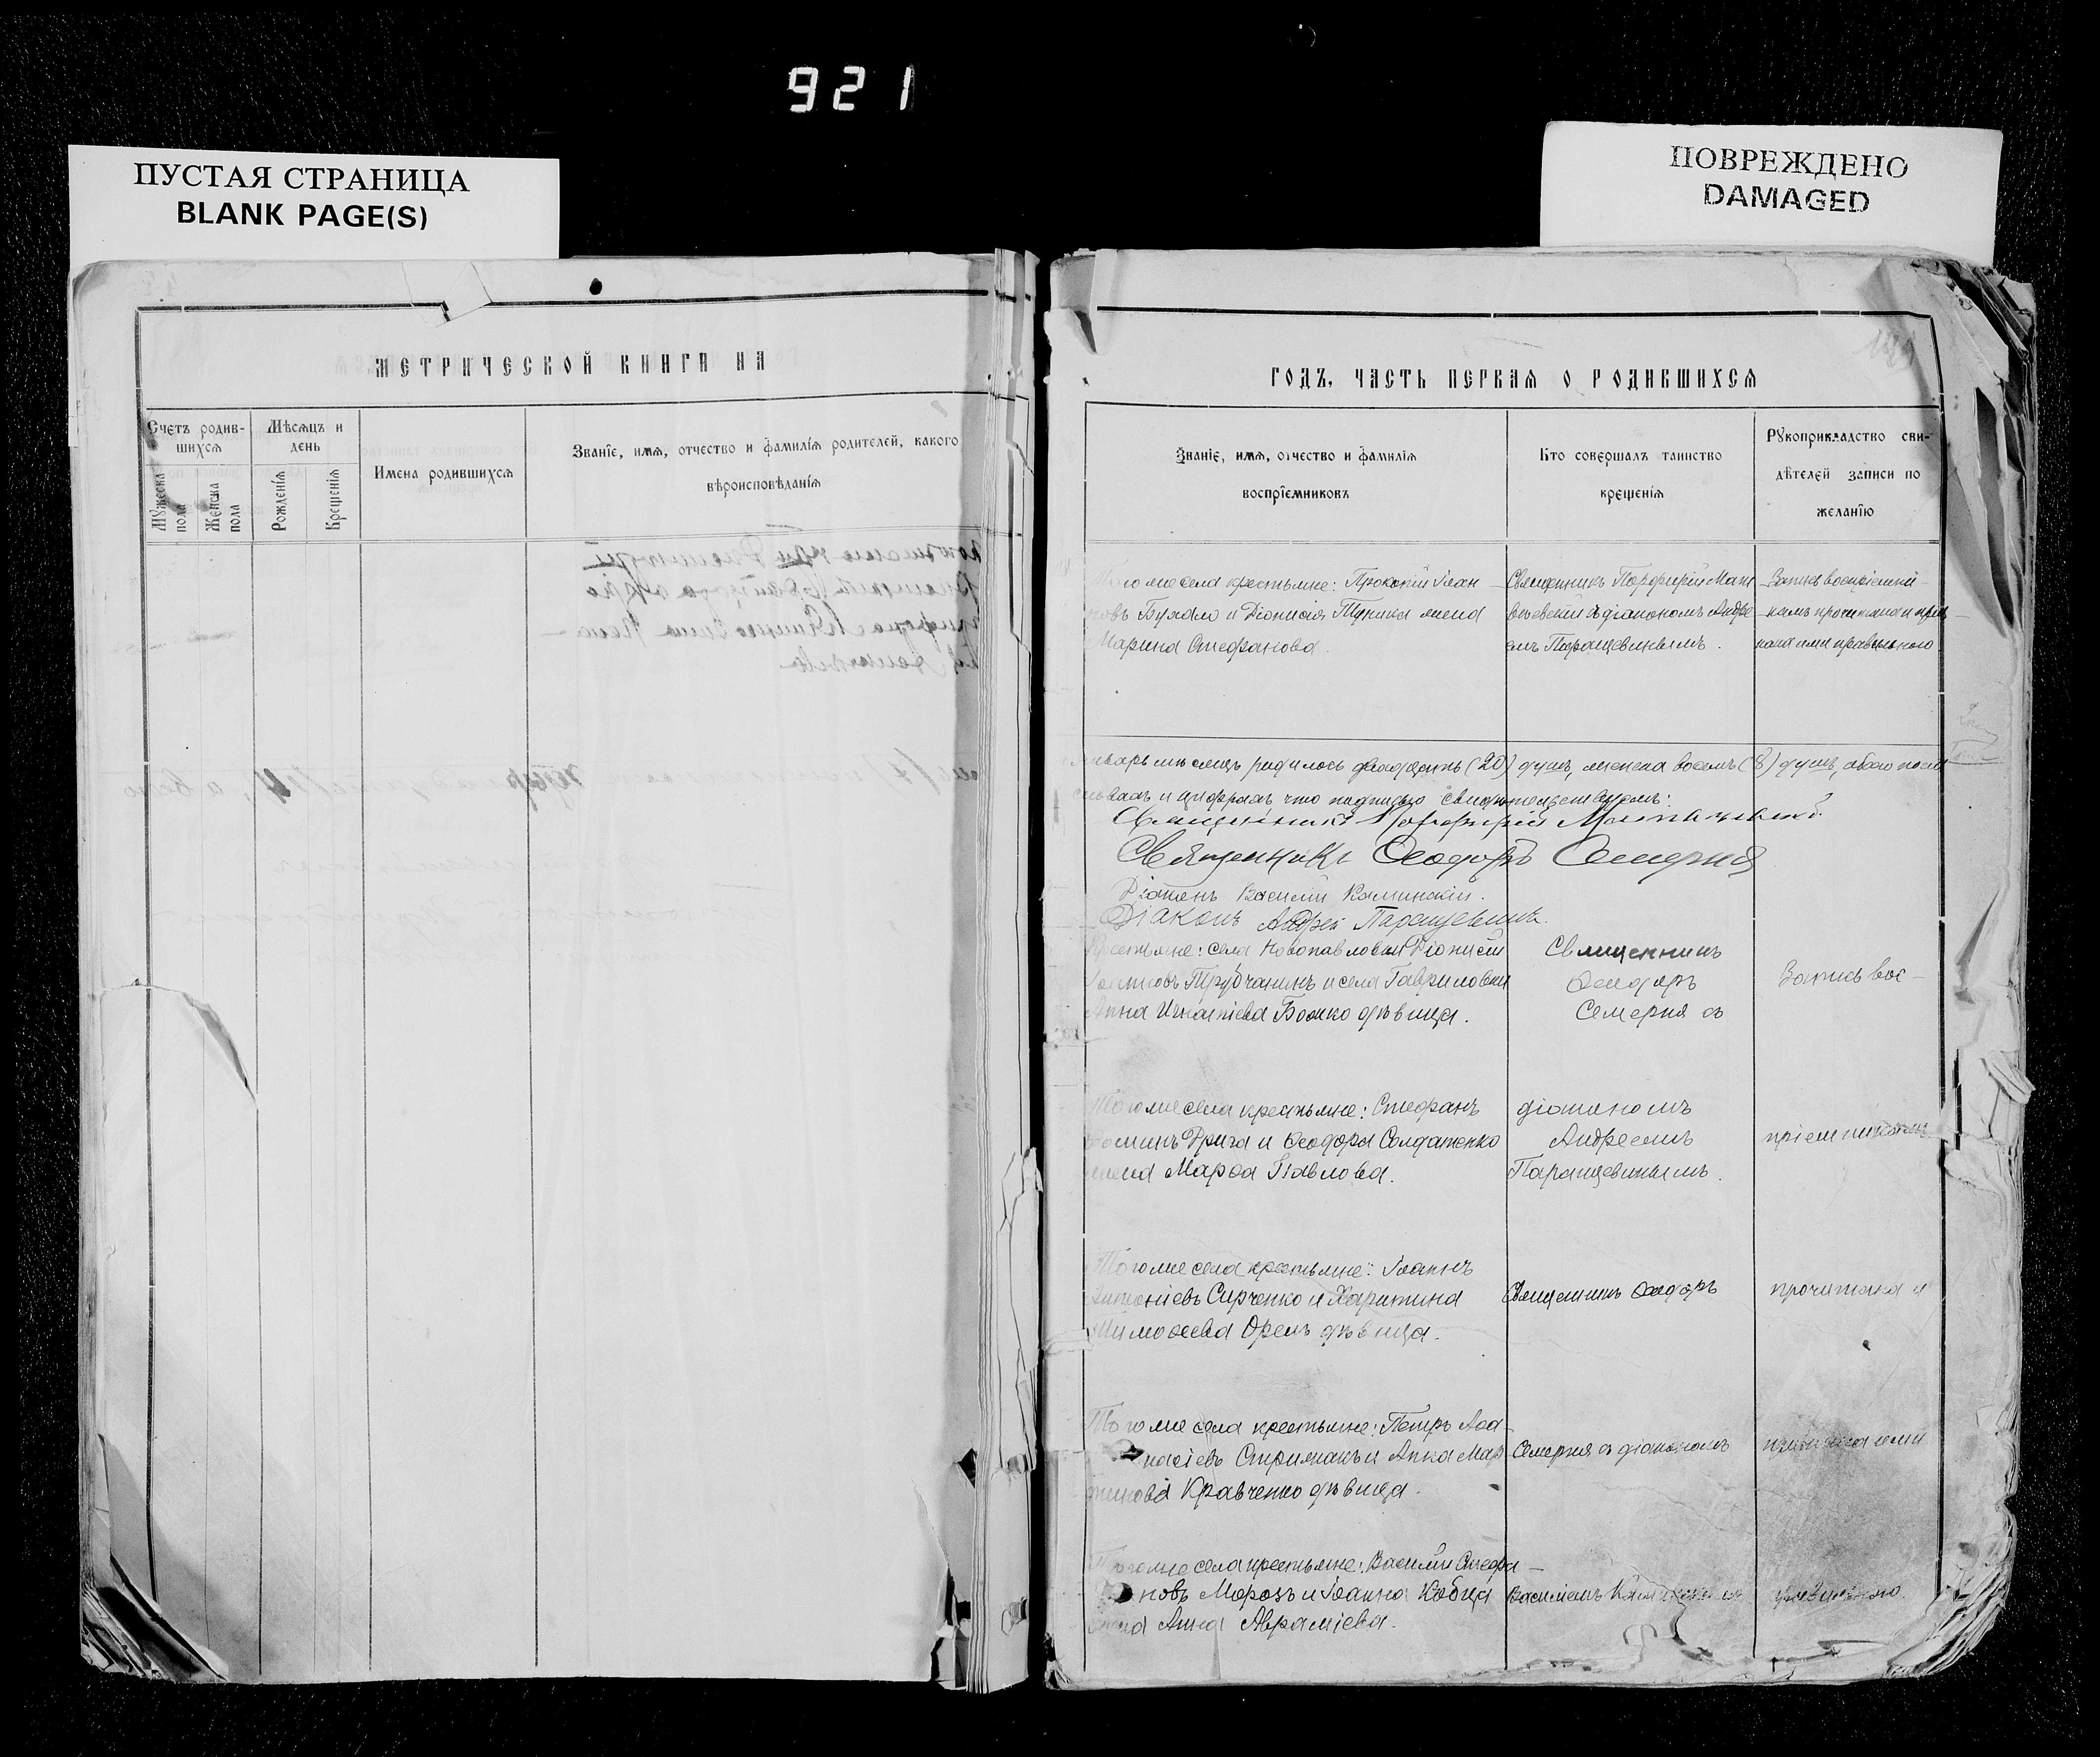 921
ПУСТАЯ СТРАНИЦА
BLANK PAGE(S)
ПОВРЕЖДЕНО
DAMAGED
МЕТРИЧЕСКОЙ КНИГИ НА
Счетъ родив-
шихся
Мѣсяцъ и
день
Имена родившихся
Званіе, имя, отчество и фамилія родителей, какого
вѣроисповѣданія
Мужеска
пола
Женска
пола
Рожденія
Крещенія
ГОДЪ, ЧАСТЬ ПЕРВАЯ О РОДИВШИХСЯ
Званіе, имя, отчество и фамилія
воспріемниковъ
Кто совершалъ таинство
крещенія
Рукоприкладство сви-
дѣтелей записи по
желанію
Того же села крестьяне: Прокопій Іоан
новъ Бухало и Діонисія жена
Марина Стефанова.
Священникъ Порфирій
съ діакономъ Андре
емъ Паращевинымъ.
Запись воспріемни-
камъ прочитана и приз-
нана ими правильною
Январѣ мѣсяцѣ родилось двадцать (20) душъ, женска восемь (8) душъ, обоего пола
словахъ и цифрахъ что подписью свидѣтельствуемъ:
Священникъ Порфирій
Священникъ Ѳеодоръ Семерня
Діаконъ Василій Каминскій.
Діаконъ Андрей Паращевинъ.
Крестьяне: села Новопавловки Діонисій
Трубчанинъ и села Гавриловки
Анна Игнатіева Божко дѣвица.
Священникъ
Ѳеодоръ
Семерня съ
Запись вос-
Того же села крестьяне: Стефанъ
Ѳоминъ Дрига и Ѳеодора Солдатенко
жена Марѳа Павлова.
діакономъ
Андреемъ
Паращевинымъ.
пріемникамъ
Того же села крестьяне: Іоаннъ
Антоніевъ Сирченко и Харитина
Тимоѳеева Орелъ дѣвица.
Священникъ Ѳеодоръ
прочитана и
Того же села крестьяне: Петръ Аѳа-
насіевъ Стрижакъ и Анна Мар
тинова Кравченко дѣвица.
Семерня съ діакономъ
признана ими
Того же села крестьяне: Василій Стефа-
новъ Морозъ и Іоанна Кобца
жена Анна Авраміева.
Василіемъ Каминскимъ
правильною.